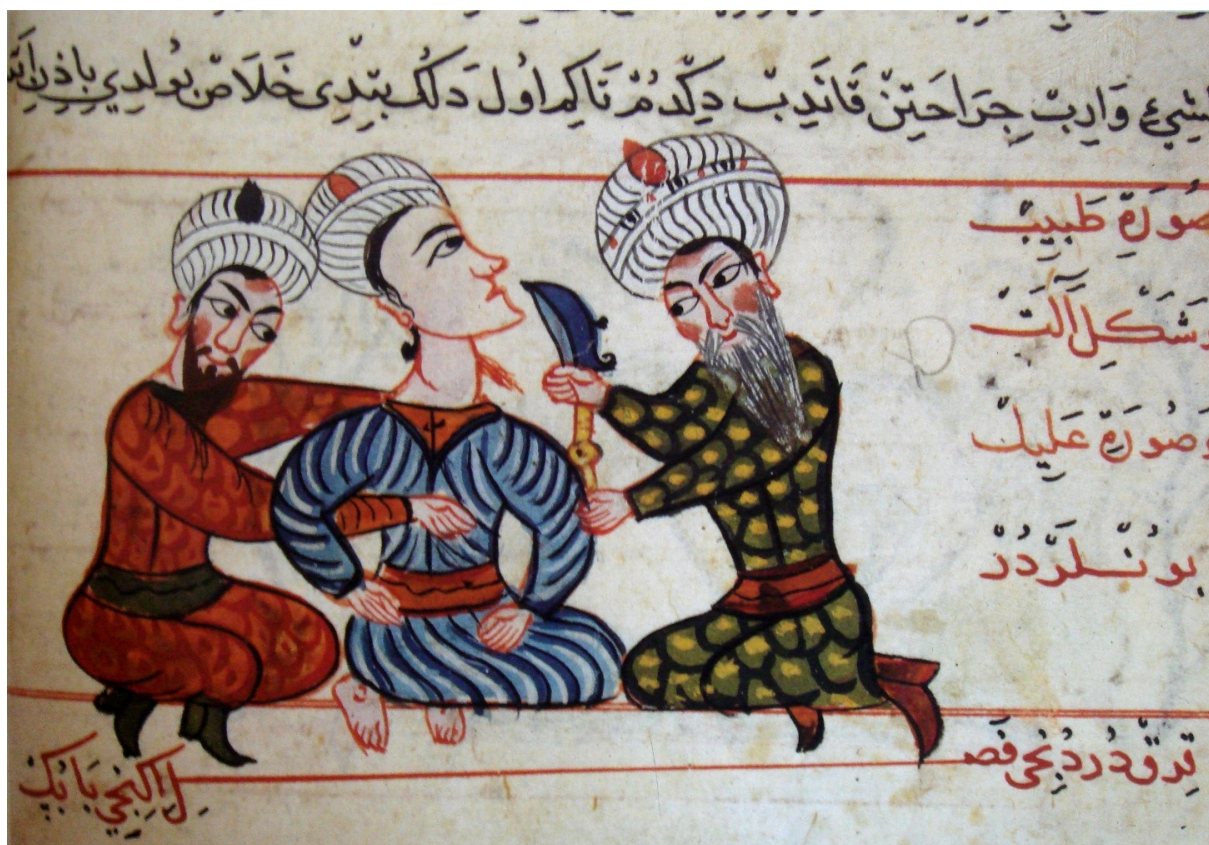 وَارِبْ جِرَاحَتِنْ قَانَدِبْ دِكْدُمْ تَاكِمْ اُولْ دَلُكْ بِتِدِى خَلَاصْ بُولْدِي بِاِذْنِ
صُورَةِ طَبِيبْ
وَشَكْلِ آلَتْ
وَصُورَةِ عَلِيلْ
بُونْلَرْدُرْ
قِرِقْ دُرْدُنْجِى فَصْلِ اِكِنْجِي بَابُكْ